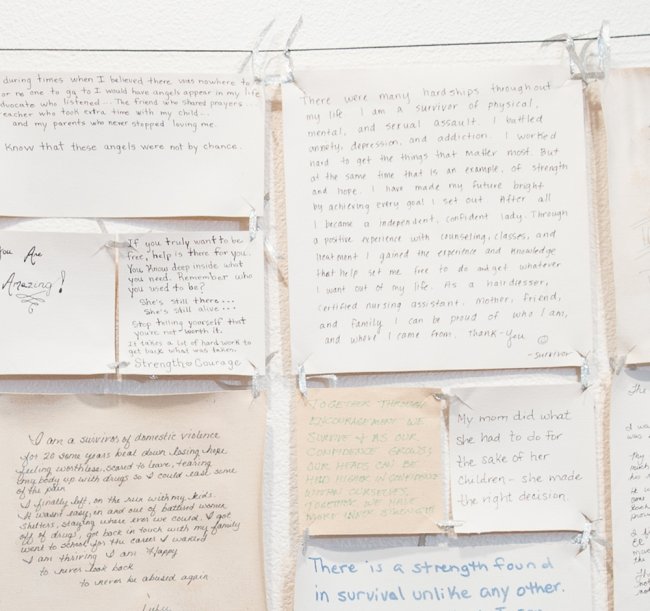 during times when I believed there was nowhere to
or no one to go to I would have angels appear in my life
advocate who listened... The friend who shared prayers...
teacher who took extra time with my child...
and my parents who never stopped loving me.
Know that these angels were not by chance.
There were many hardships throughout
my life. I am a survivor of physical,
mental, and sexual assault. I battled
anxiety, depression, and addiction. I worked
hard to get the things that matter most. But
at the same time that is an example, of strength
and hope. I have made my future bright
by achieving every goal I set out. After all
I became a independent, confident lady. Through
a positive experience with counseling, classes, and
treatment I gained the experience and knowledge
that help set me free to do and get whatever
I want out of my life. As a hairdresser,
certified nursing assistant. Mother, friend,
and family I can be proud of who I am,
and where I came from. Thank-you ☺
-survivor
You Are
Amazing!
If you truly want to be
free, help is there for you.
You know deep inside what
you need. Remember who
you used to be?
She's still there...
She's still alive...
Stop telling yourself that
you're not worth it.
It takes a lot of hard work to
get back what was taken.
Strength & Courage
I am a survivor of domestic violence
for 20 some years beat down losing hope
feeling worthless, scared to leave, tearing
my body up with drugs so I could ease some
of the pain
I finally left, on the run with my kids.
It wasn't easy, in and out of battered women
shelters, staying where ever we could. I got
off of drugs, got back in touch with my family
went to school for the career I wanted
I am thriving I am Happy
to never look back
to never be abused again
TOGETHER THROUGH
ENCOURAGEMENT WE
SURVIVE & AS OUR
CONFIDENCE GROWS;
OUR HEADS CAN BE
HELD HIGHER IN CONFIDENCE
WITHIN OURSELVES.
TOGETHER WE HAVE
INNER STRENGTH
My mom did what
she had to do for
the sake of her
children - she made
the right decision.
There is a strength found
in survival unlike any other.
The